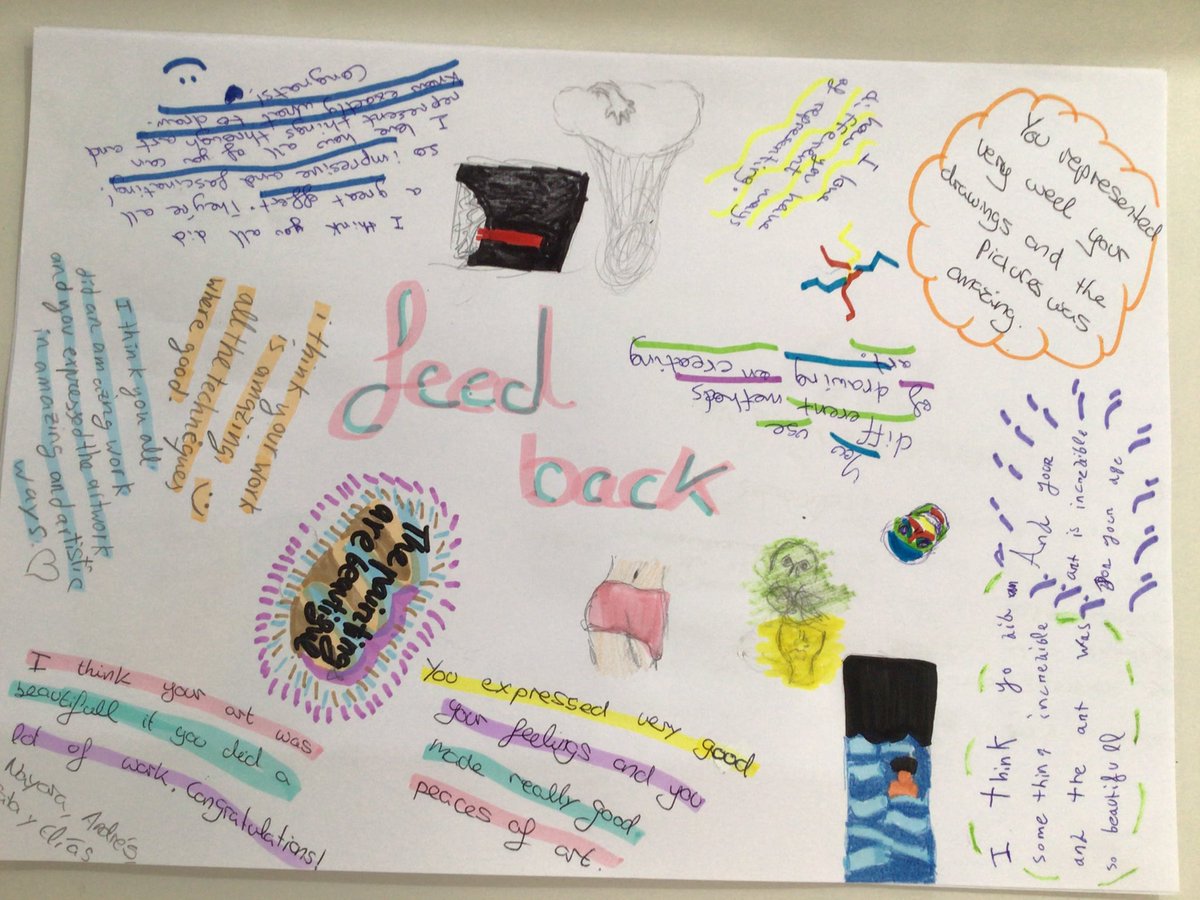 feed
back
I think you all did
a great effort. They're all
so impresive and fascinating!
I love how all of you can
represent things through art and
know exactly what to draw.
Congrats!
I love
how you have
different ways
of representing.
You represented
very weel your
drawings and the
pictures was
amazing.
I think you all
did an amazing work
and you expressed the artwork
in amazing and artistic
ways
i think your work
is amazing,
all the techneques
where good.
You use
different methods
of drawing on creating
art.
The painting
are beautiful
I think yo did
some thing incredible And your
and the art was art is incredible
so beautifull for your age
I think your art was
beautifull if you did a
lot of work. Congratulations!
Nayara, Andrés
y Elías
You expressed very good
your feelings and you
made really good
peaices of art.